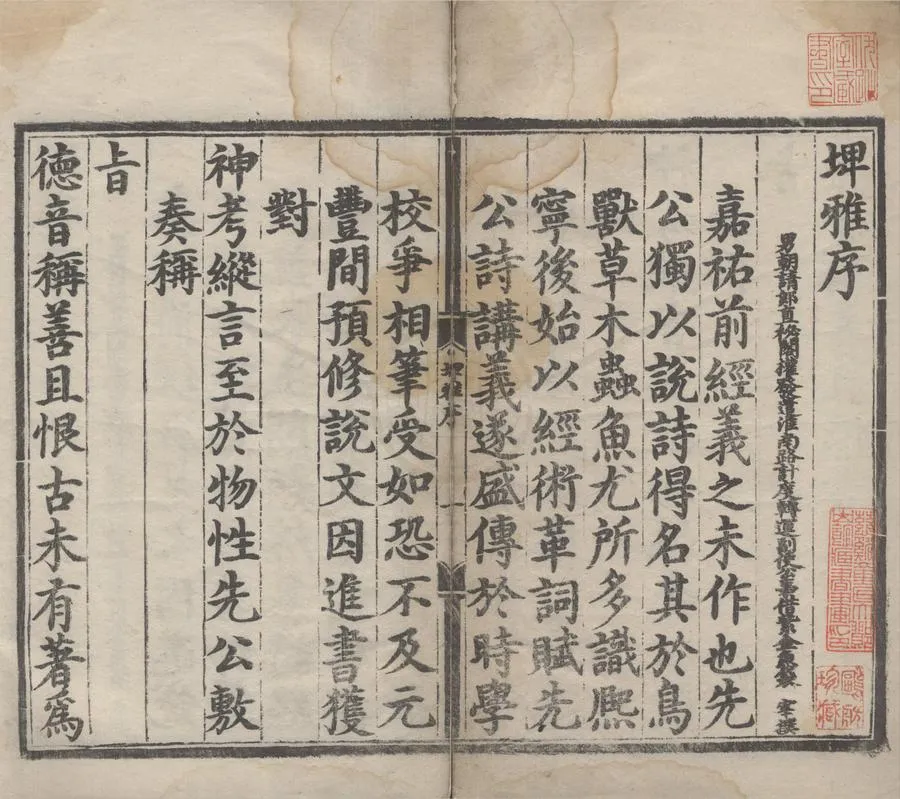 埤雅序
男朝請郎直祕閣權發遣淮南路計度轉運副使公事借紫金魚袋 宰撰
嘉祐前經義之未作也先
公獨以說詩得名其於鳥
獸草木蟲魚尤所多識熈
寧後始以經術革詞賦先
公詩講義遂盛傳於時學
埤雅序
一
校爭相筆受如恐不及元
豐間預修說文因進書獲
對
神考縱言至於物性先公敷
奏稱
旨
德音稱善且恨古未有著爲